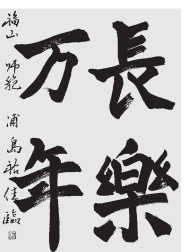 長樂
万年
福山 師範 浦島祐佳臨